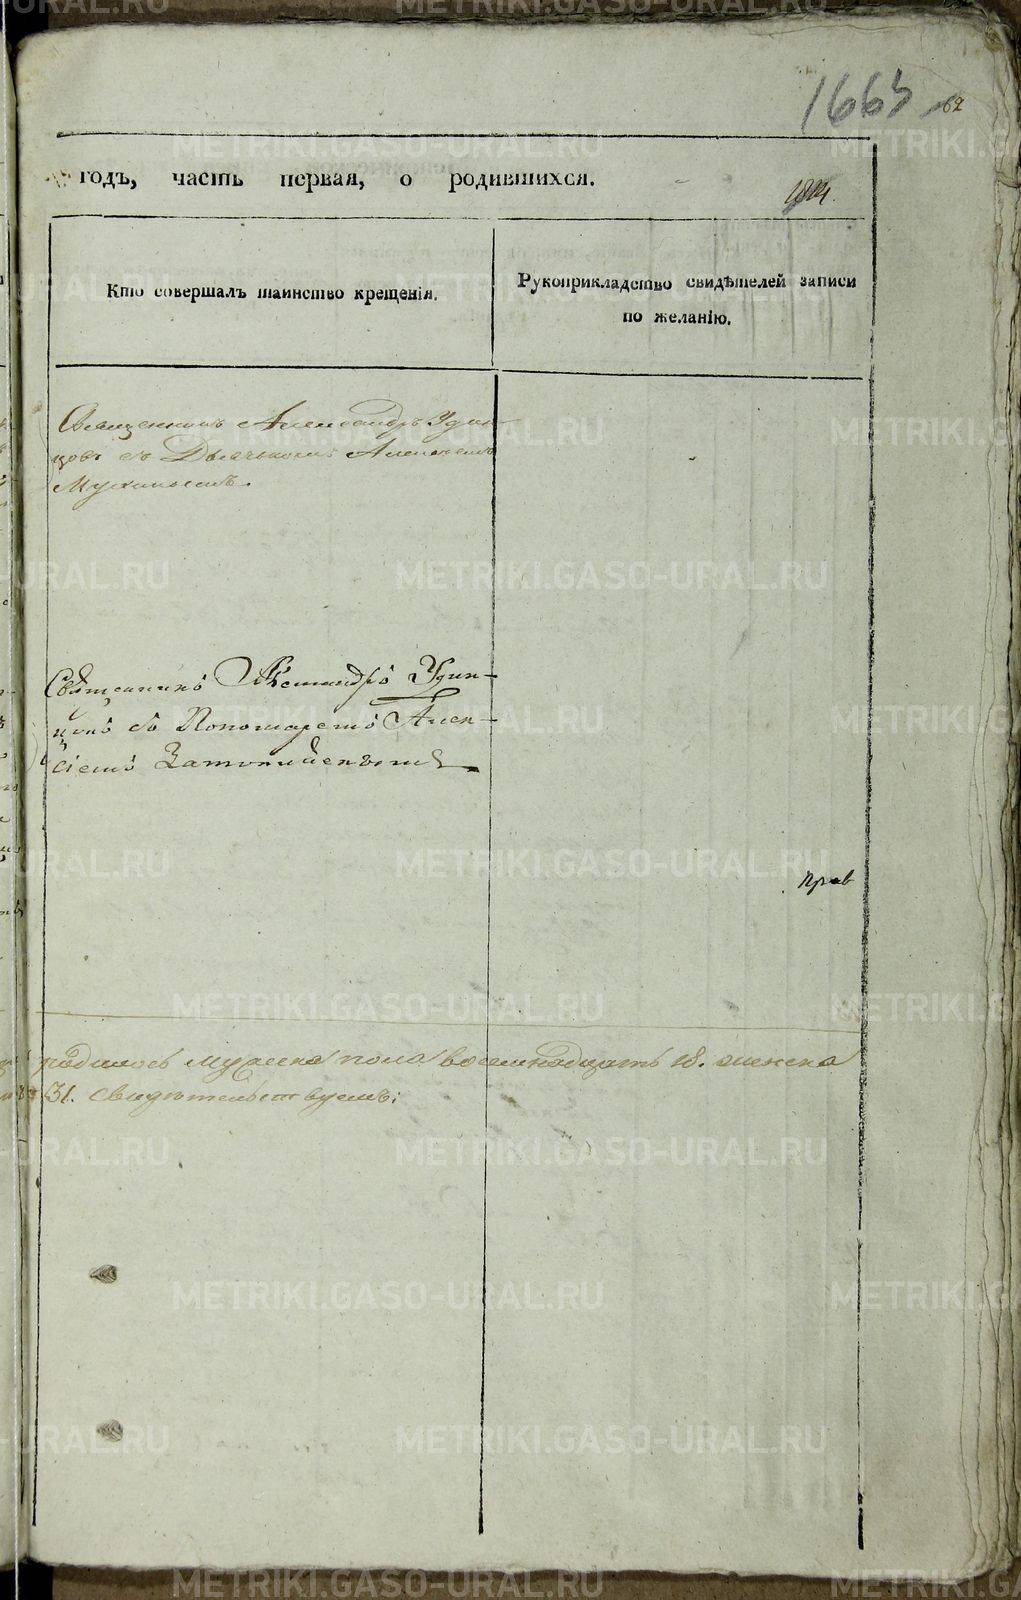 1663
62
годъ, часть первая, о родившихся.
Кто совершалъ таинство крещенія.
Рукоприкладство свидѣтелей записи
по желанію.
Священникъ Александръ Удин-
цовъ съ Дьячькомъ Алексѣемъ
Мухинымъ.
Священникъ Александръ Удин-
цовъ съ Пономаремъ Алек-
сіемъ
прав
родилось мужеска пола восемнадцать 18. женска
31. свидѣтельствуемъ:
METRIKI.GASO-URAL.RU